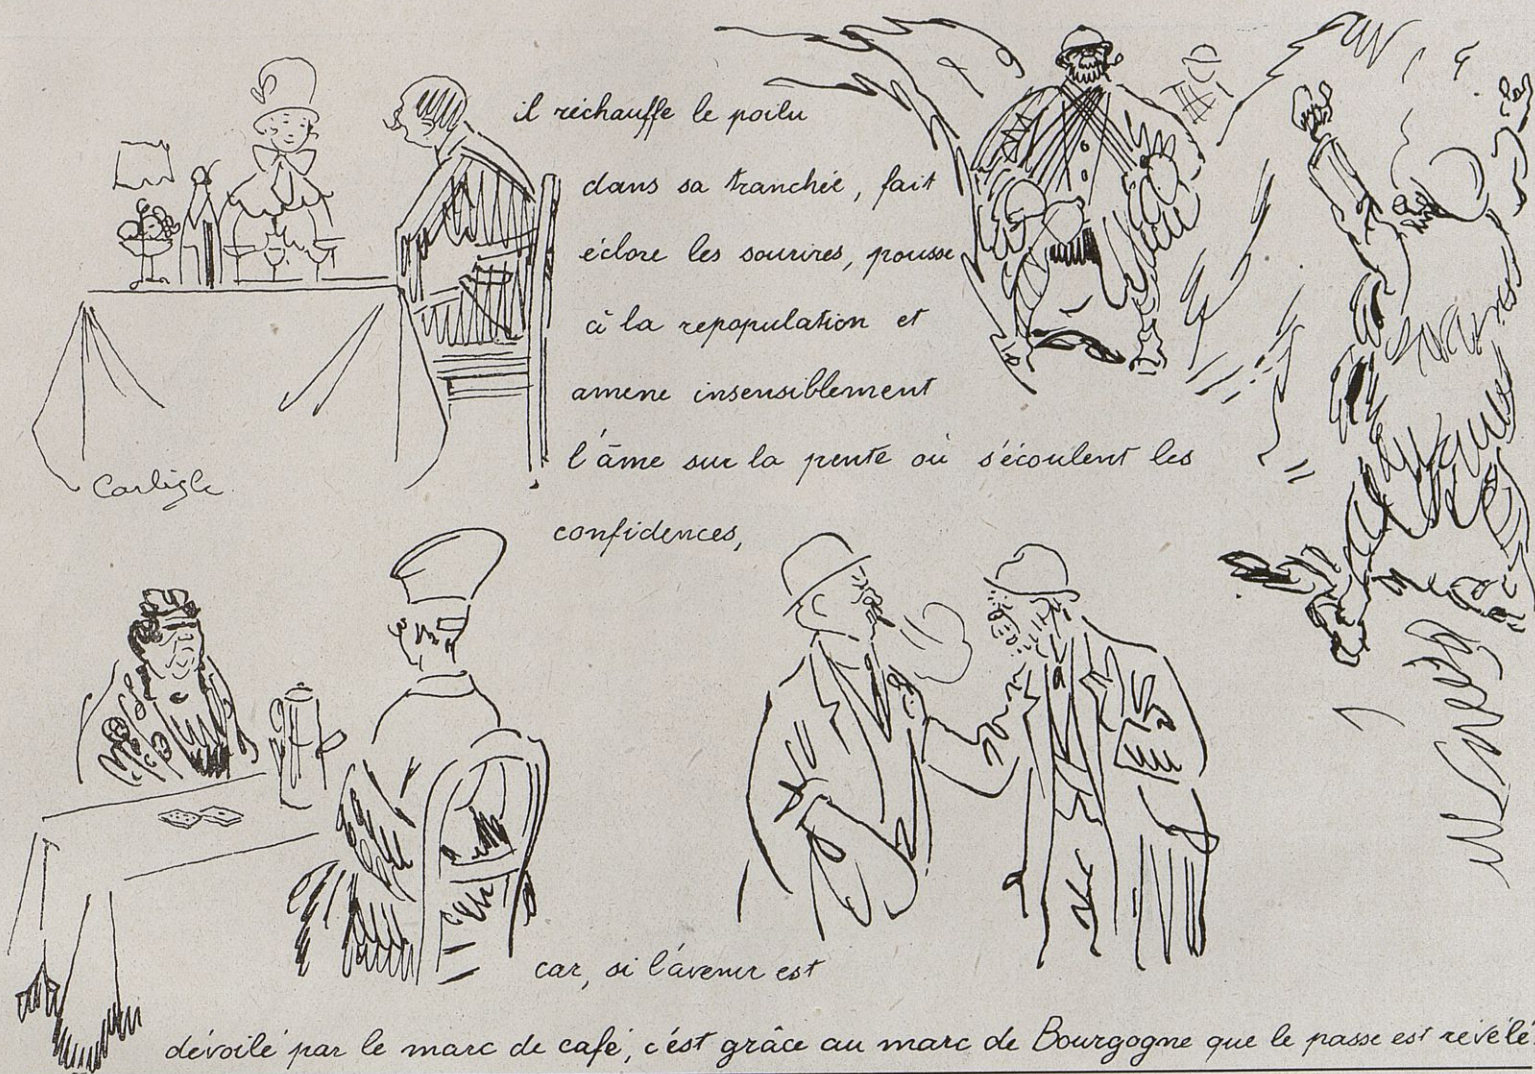 il réchauffe le poilu
dans sa tranchée, fait
éclore les sourires, pousse
à la repopulation et
amène insensiblement
l'âme sur la pente où s'écoulent les
confidences,
car, si l'avenir est
dévoilé par le marc de café, c'est grâce au marc de Bourgogne que le passé est révélé.